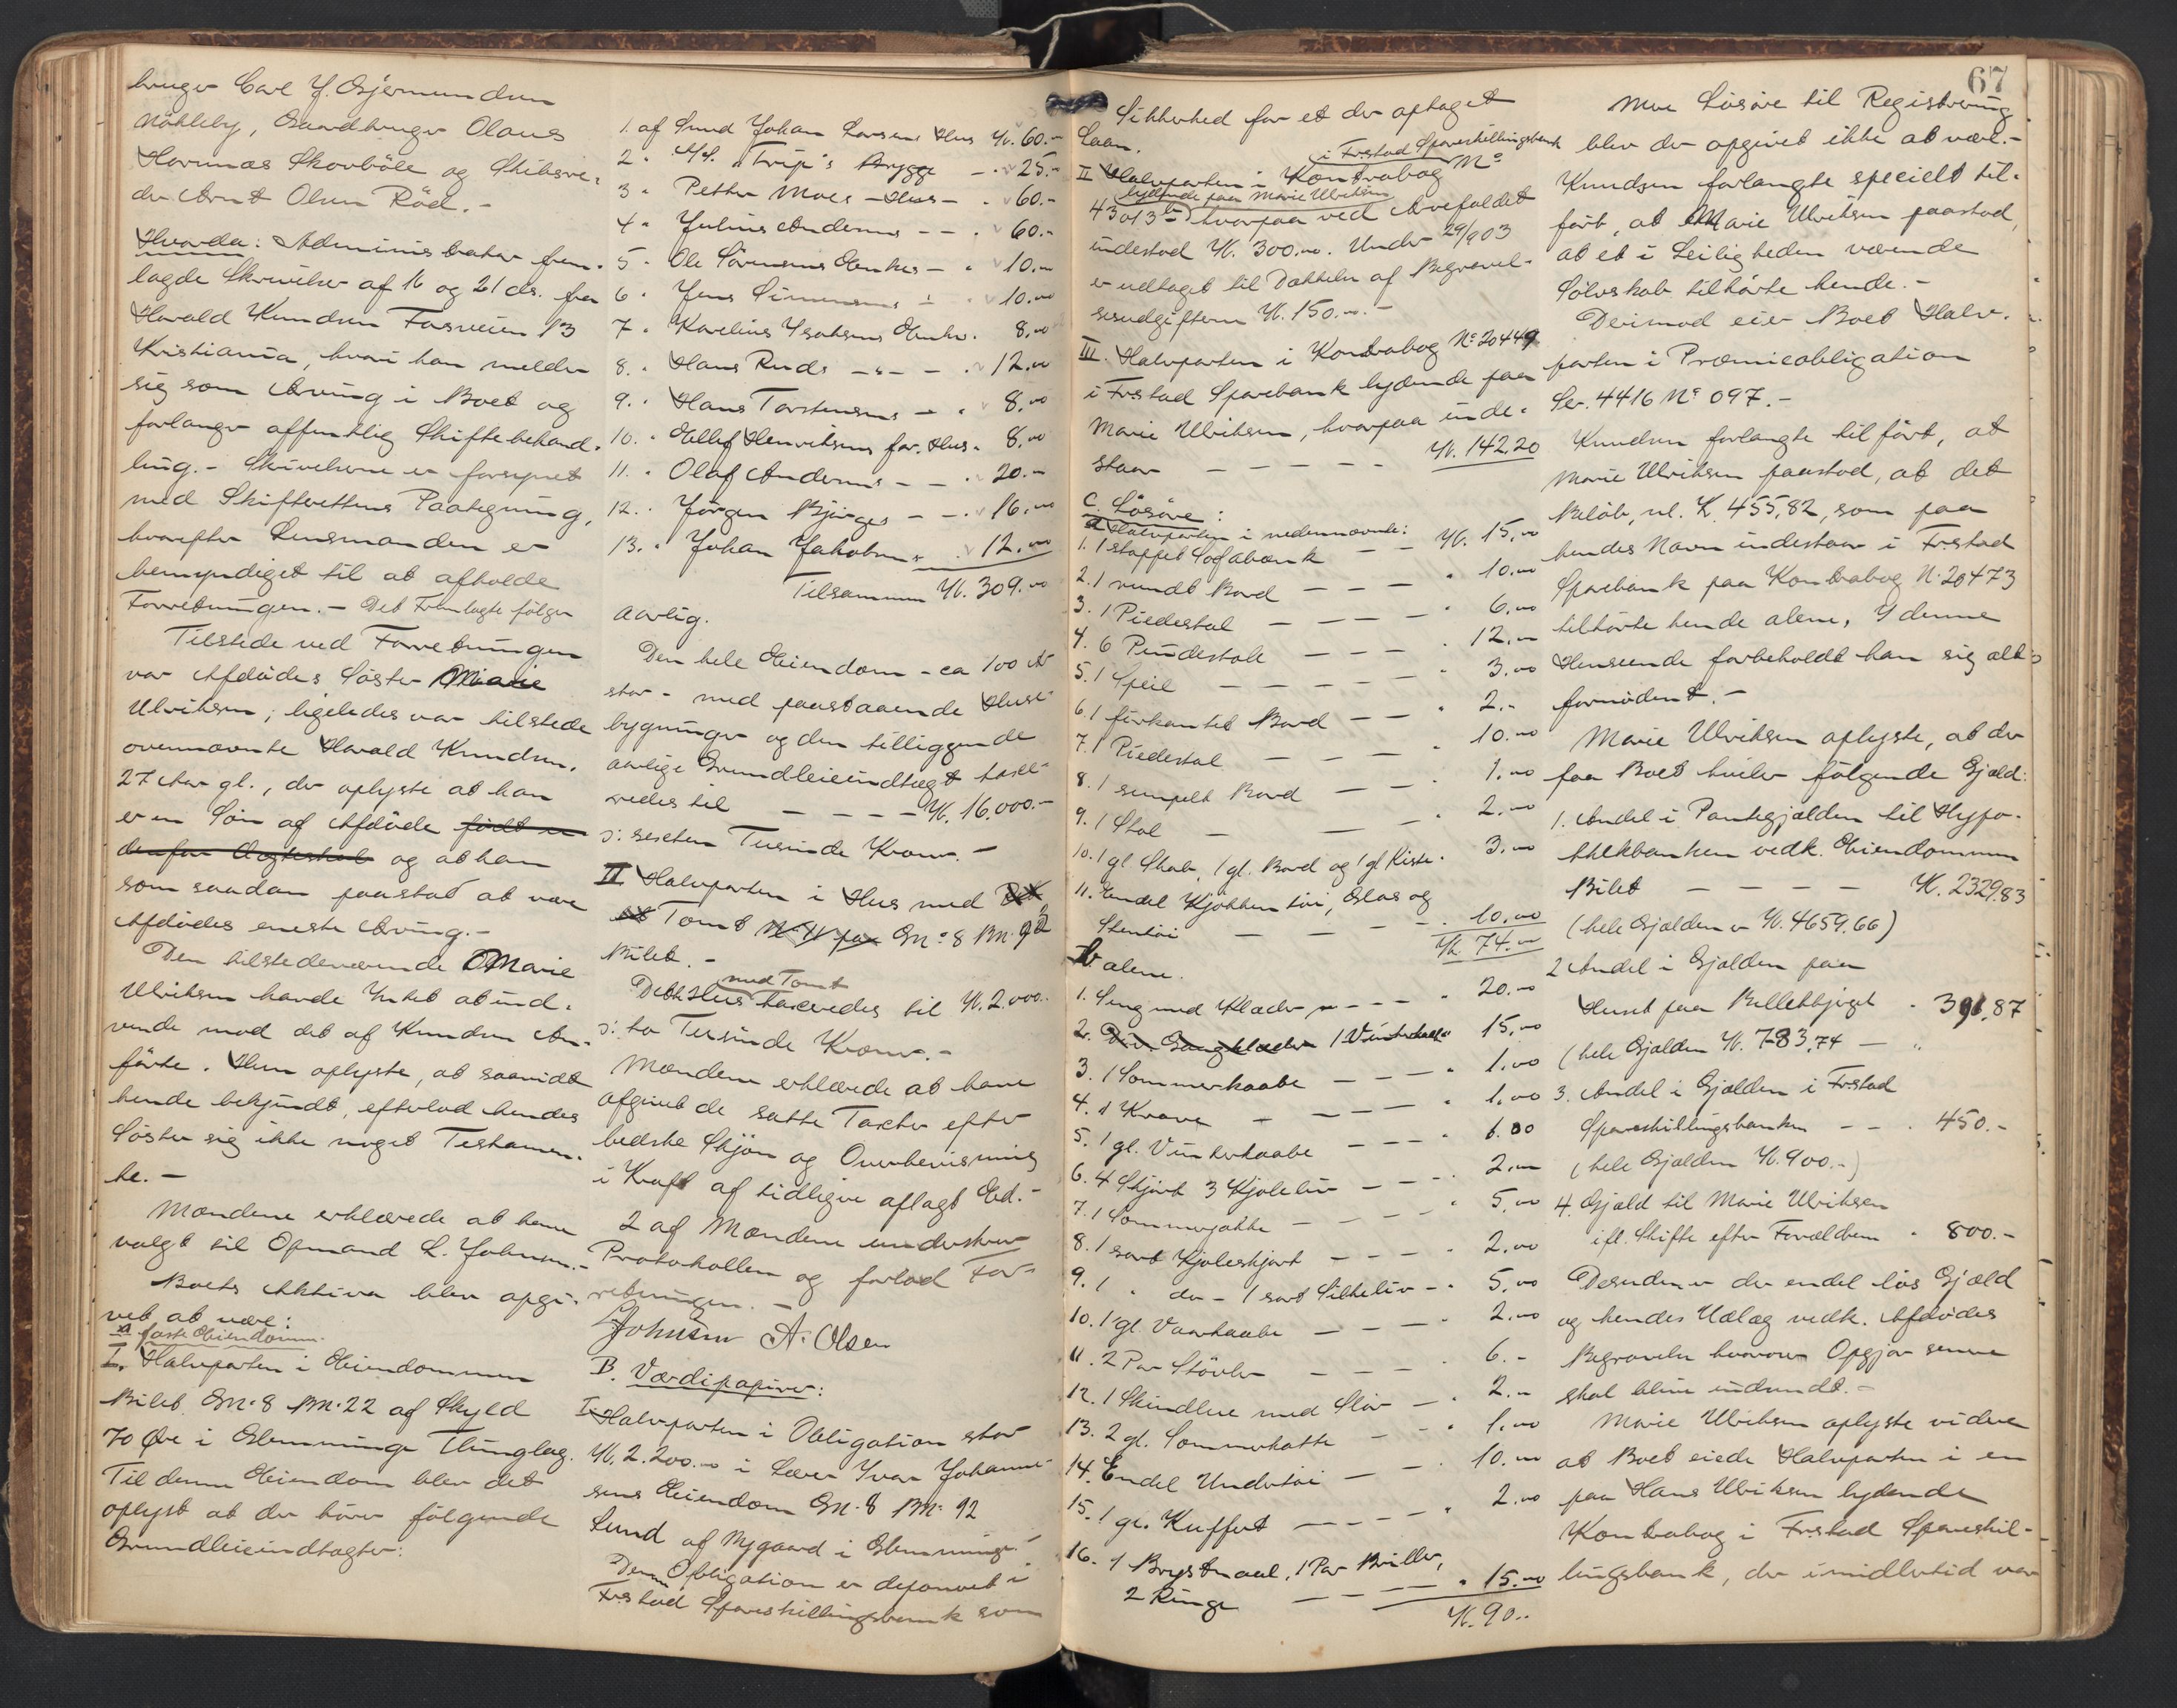 bruger Carl J. Gjermundsen
Nökleby, Gaardbruger Olaus
Havnnæs Skovböle og Skibsre-
der Arnt Olsen Röd.-
Hvorda: Administrator frem-
lagde Skrivelser af 16 og 21 ds. fra
Harald Knudsen Fosveien 13
Kristiania, hvori han melder
sig som Arving i Boet og
forlanger offentlig Skiftebehand-
ling.- Skrivelserne er forsynet
med Skifterettens Paategning,
hvorefter Lensmanden er
bemyndiget til at afholde
Forretningen.- Det Fremlagte fölger
Tilstede ved Forretningen
var Afdödes Söster Marie
Ulriksen; ligeledes var tilstede
ovennævnte Harald Knudsen,
27 Aar gl., der oplyste at han
er en Sön af Afdöde födt u-
denfor Ægteskab og at han
som saadan paastod at være
Afdödes eneste Arving.-
Den tilstedeværende Marie
Ulriksen havde Intet at ind-
vende mod det af Knudsen An-
förte. Hun oplyste, at saavidt
hende bekjendt, efterlod hendes
Söster sig ikke noget Testamen-
te.-
Mændene erklærede at have
valgt til Opmand L. Johnsen.-
Boets Aktiva blev opgi-
vet at være:
A faste Eiendomme.
I. Halvparten i Eiendommen
Bilet Gn. 8 Bn. 22 af Skyld
70 Öre i Glemminge Thinglag.
Til denne Eiendom blev det
oplyst at der hörer fölgende
Grundleieindtægter:
1. af Smed Johan Larsens Hus Kr. 60.-
2. " A/S. Trip's Brygge - " 25.-
3 " Petter Moes - Hus - " 60.-
4. " Julius Andersens - - " 60.-
5. " Ole Sörensens Enkes - " 10.00
6. " Jens Simensens - " 10.00
7. " Karelius Isaksens Enke. " 8.00
8. " Hans Ruds - - - " 12.00
9. " Hans Torstensens - " 8.00
10. " Ellef Henriksens for. Hus. " 8.00
11. " Olaf Andersens - - " 20.-
12. " Jörgen Björges - - " 16.00
13. " Johan Jakobsens " 12.00
Tilsammen Kr. 309.00
aarlig.
Den hele Eiendom - ca 100 Ar
stor - med paastaaende Huse-
bygninger og den tilliggende
aarlige Grundleieindtægt taxe-
redes til - - - - Kr. 16.000.-
ɔ: sexten Tusinde Kroner.-
II Halvparten i Hus med
Tomt No 11 paa Gn. 8 Bn. 92
Bilet.-
Dette Hus med Tomt taxeredes til Kr. 2.000.-
ɔ: to Tusinde Kroner.-
Mændene erklærede at have
afgivet de satte Taxter efter
bedste Skjön og Overbevisning
i Kraft af tidligere aflagt Ed.-
2 af Mændene underskrev
Protokollen og forlod For-
retningen.-
L Johnsen A. Olsen
B. Værdipapirer:
I. Halvparten i Obligation stor
Kr. 2.200.00 i Læver Ivar Johanne-
sens Eiendom Gn. 8 Bn. 92
Lund af Nygaard i Glemminge.-
Denne Obligation er deponeret i
Fr.stad Spareskillingsbank som
67
Sikkerhed for et der optaget
Laan.
i Fr.stad Spareskillingsbank
II Halvparten i Kontrabog No
lydende paa Marie Ulriksen
43013 hvorpaa ved Arvefaldet
indestod Kr. 300.00. Under 29/9 03
er udtaget til Dækkelse af Begravel-
sesudgifterne Kr. 150.00.-
III. Halvparten i Kontrabog No 20449
i Fr.stad Sparebank lydende paa
Marie Ulriksen, hvorpaa inde-
staar - - - - - Kr. 142.20
C. Lösöre:
a Halvparten i nedennævnte:
1. 1 stoppet Sofabænk - - Kr. 15.00
2. 1 rundt Bord - - - " 10.00
3. 1 Piedestal - - - - " 6.00
4. 6 Pindestole - - - " 12.00
5. 1 Speil - - - - - " 3.00
6. 1 firkantet Bord - - " 2.-
7. 1 Piedestal - - - " 10.00
8. 1 simpelt Bord - - " 1.00
9. 1 Stol - - - " 2.00
10. 1 gl Skab, 1 gl. Bord og 1 gl Kiste. 3.00
11. Endel Kjökkentöi, Glas og
Stentöi - - - - 10.00
Kr. 74.00
b alene.
1. Seng med Klæder - - - - " 20.00
2. Div. Gangklæder 1 Vinterkaabe " 15.00
3. 1 Sommerkaabe - - - - " 1.00
4. 1 Krave - - - - " 1.00
5. 1 gl. Vinterkaabe - - - " 6.00
6. 4 Skjört 3 Kjoleliv - - - " 2.00
7. 1 Sommerjakke - - - - " 5.00
8. 1 sort Kjoleskjört - - - " 2.00
9. 1 " do - 1 sort Silkeliv - " 5.00
10. 1 gl. Vaarkaabe - - - " 2.00
11. 2 Par Stövler - - - " 6.-
12. 1 Skindlue med Slör - " 2.-
13. 2 gl. Sommerhatte - - " 1.00
14. Endel Undertöi - - " 10.00
15. 1 gl. Kuffert - - - - " 2.00
16. 1 Brystnaal, 1 Par Briller,
2 Ringe - - - - " 15.00
Kr. 90.-
Mere Lösöre til Registrering
blev der opgivet ikke at være.-
Knudsen forlangte specielt til-
fört, at Marie Ulriksen paastod,
at et i Leiligheden værende
Sölvskab tilhörte hende.-
Derimod eier Boet Halv-
parten i Præmieobligation
Ser. 4416 No 097.-
Knudsen forlangte tilfört, at
Marie Ulriksen paastod, at det
Belöb, nl. K. 455,82, som paa
hendes Navn indestaar i Fr.stad
Sparebank paa Kontrabog N. 20473
tilhörte hende alene, I denne
Henseende forbeholdt han sig alt
fornödent.-
Marie Ulriksen oplyste, at der
paa Boet hviler fölgende Gjæld:
1. Andel i Pantegjælden til Hypo-
thekbanken vedk. Eiendommen
Bilet - - - - K. 2329.83
(hele Gjælden er Kr. 4659.66)
2 Andel i Gjælden paa
Huset paa Billetbjerget " 391,87
(hele Gjælden Kr. 783,74 - "
3. Andel i Gjælden i Fr.stad
Spareskillingsbanken - - " 450.-
(hele Gjælden Kr. 900.-)
4. Gjæld til Marie Ulriksen
ifl. Skifte efter Forældrene " 800.-
Desuden er der endel lös Gjæld
og hendes Udlæg vedk. Afdödes
Begravelse hvorover Opgjör senere
skal blive indsendt.-
Marie Ulriksen oplyste videre
at Boet eiede Halvparten i en
paa Hans Ulriksen lydende
Kontrabog i Fr.stad Spareskil-
lingsbank, der imidlertid var